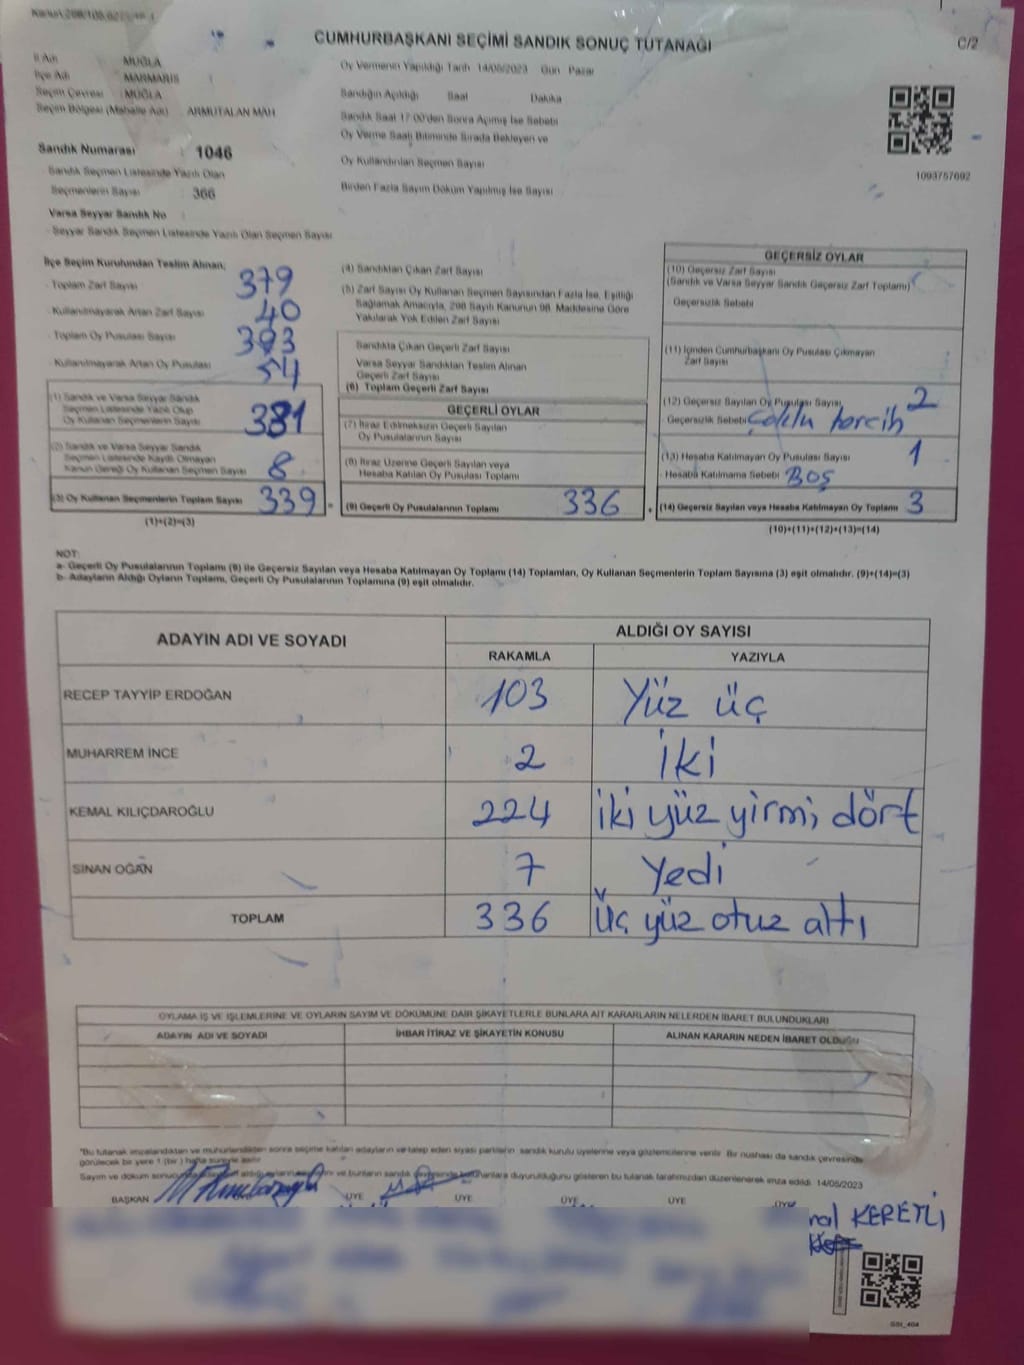 CUMHURBAŞKANI SEÇİMİ SANDIK SONUÇ TUTANAĞI
C/2
İl Adı MUĞLA
İlçe Adı MARMARİS
Seçim Çevresi : MUĞLA
Seçim Bölgesi (Mahalle Adı) : ARMUTALAN MAH
Oy Vermenin Yapıldığı Tarih 14/05/2023 Gün Pazar
Sandığın Açıldığı Saat Dakika
Sandık Saat 17:00'den Sonra Açılmış İse Sebebi
Oy Verme Saati Bitiminde Sırada Bekleyen ve
Oy Kullandırılan Seçmen Sayısı
Birden Fazla Sayım Döküm Yapılmış İse Sayısı
1093757692
Sandık Numarası : 1046
Sandık Seçmen Listesinde Yazılı Olan
Seçmenlerin Sayısı : 366
Varsa Seyyar Sandık No :
- Seyyar Sandık Seçmen Listesinde Yazılı Olan Seçmen Sayısı
İlçe Seçim Kurulundan Teslim Alınan;
- Toplam Zarf Sayısı 379
- Kullanılmayarak Artan Zarf Sayısı 40
- Toplam Oy Pusulası Sayısı 393
- Kullanılmayarak Artan Oy Pusulası 54
(1) Sandık ve Varsa Seyyar Sandık
Seçmen Listesinde Yazılı Olup
Oy Kullanan Seçmenlerin Sayısı 331
(2) Sandık ve Varsa Seyyar Sandık
Seçmen Listesinde Kayıtlı Olmayan
Kanun Gereği Oy Kullanan Seçmen Sayısı 8
(3) Oy Kullanan Seçmenlerin Toplam Sayısı 339 =
(1)+(2)=(3)
(4) Sandıktan Çıkan Zarf Sayısı
(5) Zarf Sayısı Oy Kullanan Seçmen Sayısından Fazla İse, Eşitliği
Sağlamak Amacıyla, 298 Sayılı Kanunun 98. Maddesine Göre
Yakılarak Yok Edilen Zarf Sayısı
Sandıkta Çıkan Geçerli Zarf Sayısı
Varsa Seyyar Sandıktan Teslim Alınan
Geçerli Zarf Sayısı
(6) Toplam Geçerli Zarf Sayısı
GEÇERLİ OYLAR
(7) İtiraz Edilmeksizin Geçerli Sayılan
Oy Pusulalarının Sayısı
(8) İtiraz Üzerine Geçerli Sayılan veya
Hesaba Katılan Oy Pusulası Toplamı
(9) Geçerli Oy Pusulalarının Toplamı 336 +
GEÇERSİZ OYLAR
(10) Geçersiz Zarf Sayısı
(Sandık ve Varsa Seyyar Sandık Geçersiz Zarf Toplamı)
Geçersizlik Sebebi
(11) İçinden Cumhurbaşkanı Oy Pusulası Çıkmayan
Zarf Sayısı
(12) Geçersiz Sayılan Oy Pusulası Sayısı 2
Geçersizlik Sebebi Çoklu tercih
(13) Hesaba Katılmayan Oy Pusulası Sayısı 1
Hesaba Katılmama Sebebi BOŞ
(14) Geçersiz Sayılan veya Hesaba Katılmayan Oy Toplamı 3
(10)+(11)+(12)+(13)=(14)
NOT:
a- Geçerli Oy Pusulalarının Toplamı (9) ile Geçersiz Sayılan veya Hesaba Katılmayan Oy Toplamı (14) Toplamları, Oy Kullanan Seçmenlerin Toplam Sayısına (3) eşit olmalıdır. (9)+(14)=(3)
b- Adayların Aldığı Oyların Toplamı, Geçerli Oy Pusulalarının Toplamına (9) eşit olmalıdır.
ADAYIN ADI VE SOYADI ALDIĞI OY SAYISI
RAKAMLA YAZIYLA
RECEP TAYYİP ERDOĞAN 103 Yüz üç
MUHARREM İNCE 2 İki
KEMAL KILIÇDAROĞLU 224 İki yüz yirmi dört
SİNAN OĞAN 7 Yedi
TOPLAM 336 Üç yüz otuz altı
OYLAMA İŞ VE İŞLEMLERİNE VE OYLARIN SAYIM VE DÖKÜMÜNE DAİR ŞİKAYETLERLE BUNLARA AİT KARARLARIN NELERDEN İBARET BULUNDUKLARI
ADAYIN ADI VE SOYADI İHBAR İTİRAZ VE ŞİKAYETİN KONUSU ALINAN KARARIN NEDEN İBARET OLDUĞU
*Bu tutanak imzalandıktan ve mühürlendikten sonra seçime katılan adayların ve talep eden siyasi partilerin sandık kurulu üyelerine veya gözlemcilerine verilir. Bir nüshası da sandık çevresinde
görülecek bir yere 1 (bir) hafta süreyle asılır.
Sayım ve döküm sonucunda bunların sandık düzenlenerek imza edildi. 14/05/2023
BAŞKAN ÜYE ÜYE ÜYE ÜYE ÜYE
KERETLİ